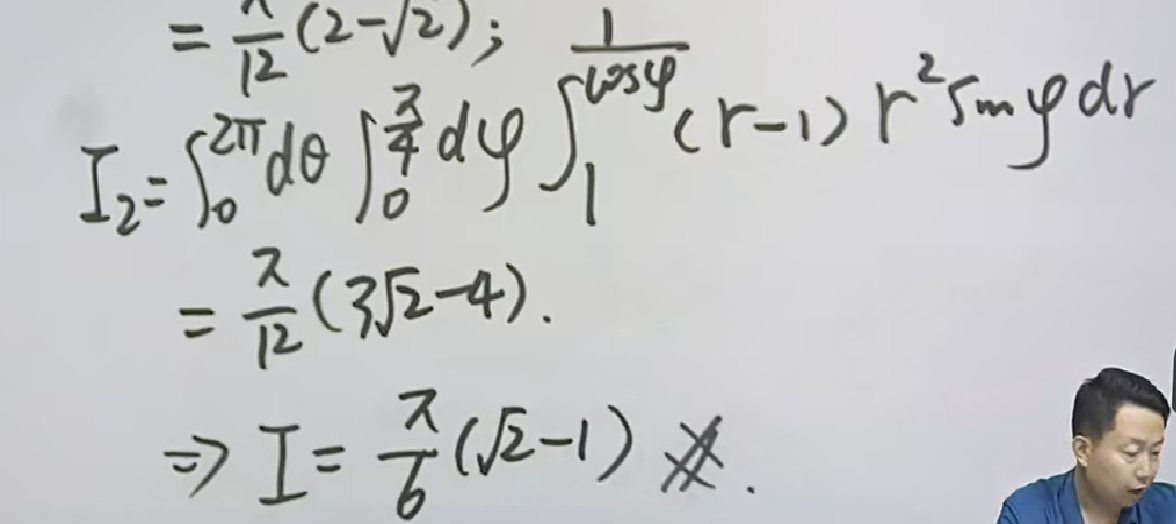 = π/12 (2-√2);
I₂ = ∫₀^{2π} dθ ∫₀^{π/4} dφ ∫₁^{1/cosφ} (r-1) r² sinφ dr
= π/12 (3√2-4).
⇒ I = π/6 (√2-1) ※.